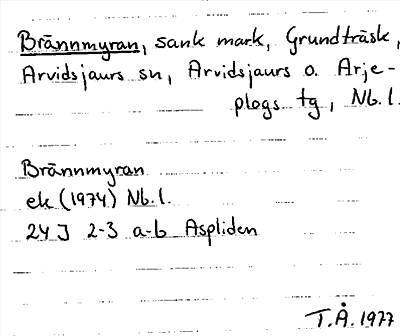 Brännmyran, sank mark, Grundträsk,
Arvidsjaurs sn, Arvidsjaurs o. Arje-
plogs tg, Nb.l.
Brännmyran
ek (1974) Nb.l.
24 J 2-3 a-b Aspliden
T.Å. 1977